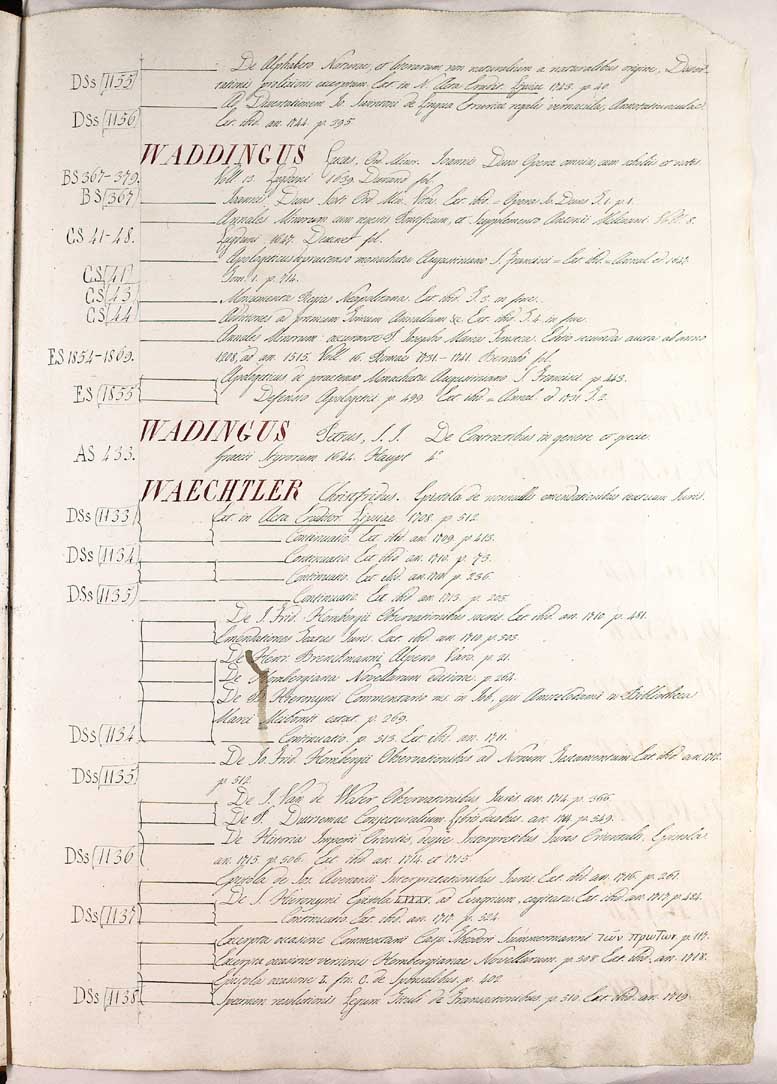 De Alphabeto Naturae, et literarum non naturalium a naturalibus origine,
DSs (1155 rationis prolixioris excerptum. Ext. in N. Acta Erudit. Lipsiae 1743. p. 40
Ad Dissertationem de Lingua regalis vernacula,
DSs (1156 Ext. ibid. an. 1744 p. 395
WADDINGUS Lucas, Ord. Min. Ioannis Duns Opera omnia, cum scholiis et notis
BS 367-379. Voll. 13. Lugduni 1639. Durand fol.
BS (367 Ioannis Duns Scoti Ord. Min. Vita. Ext. ibi = Opera Io. Duns T. 1. p. 1.
Annales Minorum cum regesto Pontificum, et supplemento Antonii Voll. 8.
CS 41-48. Lugduni 1647. fol.
Apologeticus de praetenso monachatu Augustiniano S. Francisci = Ext. ibi = Annal. ed. 1647
CS (41 Tom. 1. p. 714.
CS (43 Monumenta Regia Neapolitana. Ext. ibi. T. 3. in fine.
CS (44 Additiones ad primum Tomum Annalium &c. Ext. ibi. T. 4. in fine.
Annales Minorum accurante P. Iosepho Maria Fonseca. Editio secunda aucta ab anno
ES 1854-1869. 1208, ad an. 1515. Voll. 16. Romae 1731-1741. fol.
Apologeticus de praetenso Monachatu Augustiniano S. Francisci. p. 443.
ES (1855 Defensio Apologetici p. 499. Ext. ibi = Annal. ed. 1731 T. 2.
WADINGUS Petrus, S. I. De Contractibus in genere et specie.
AS 433. Graecii Styrorum 1644. Haupt 4°
WAECHTLER Christfridus. Epistola de nonnullis emendationibus textuum Iuris.
DSs (1133 Ext. in Acta Eruditor. Lipsiae 1708. p. 312.
Continuatio. Ext. ibid. an. 1709. p. 413.
DSs (1134 Continuatio. Ext. ibid. an. 1710. p. 73.
Continuatio. Ext. ibid. an. 1711. p. 236.
DSs (1135 Continuatio. Ext. ibid. an. 1713. p. 205.
De I. Frid. Hombergii Observationibus iuris. Ext. ibid. an. 1710. p. 481.
Emendationes Textus Iuris. Ext. ibid. an. 1710. p. 525.
De Henr. Brenckmanni Alpheno Varo. p. 21.
De Hombergiana Novellarum editione. p. 264.
De S. Hieronymi Commentario ms. in Iob, qui Amstelodami in Bibliotheca
p. 269.
DSs (1134 Continuatio. p. 313. Ext. ibid. an. 1711.
De Io. Frid. Hombergii Observationibus ad Novum Testamentum. Ext. ibid. an. 1712.
DSs (1135 p. 312.
De I. Van de Water Observationibus Iuris an. 1714. p. 366.
De Conjecturalium Libris duobus. an. 1714. p. 349.
De Historia Imperii Orientis, deque Interpretibus Iuris Orientalis, Epistola
DSs (1136 an. 1715. p. 506. Ext. ibid. an. 1714. et 1715.
Epistola de Ios. Averanii Interpretationibus Iuris. Ext. ibid. an. 1716. p. 261.
De S. Hieronymi Epistola LXXXV. ad Evagrium, cogitata. Ext. ibid. an. 1717. p. 484.
DSs (1137 Continuatio. Ext. ibid. an. 1717. p. 524
Excerpta occasione Commentarii Casp. Theodori Summermanni τῶν πρώτων. p. 117.
Excerpta occasione versionis Hombergianae Novellarum. p. 308. Ext. ibid. an. 1718.
Epistola occasione L. fin. C. de Sponsalibus. p. 402
DSs (1138 Specimen resolutionis Legum Tituli de Transactionibus. p. 510. Ext. ibid. an. 1719.